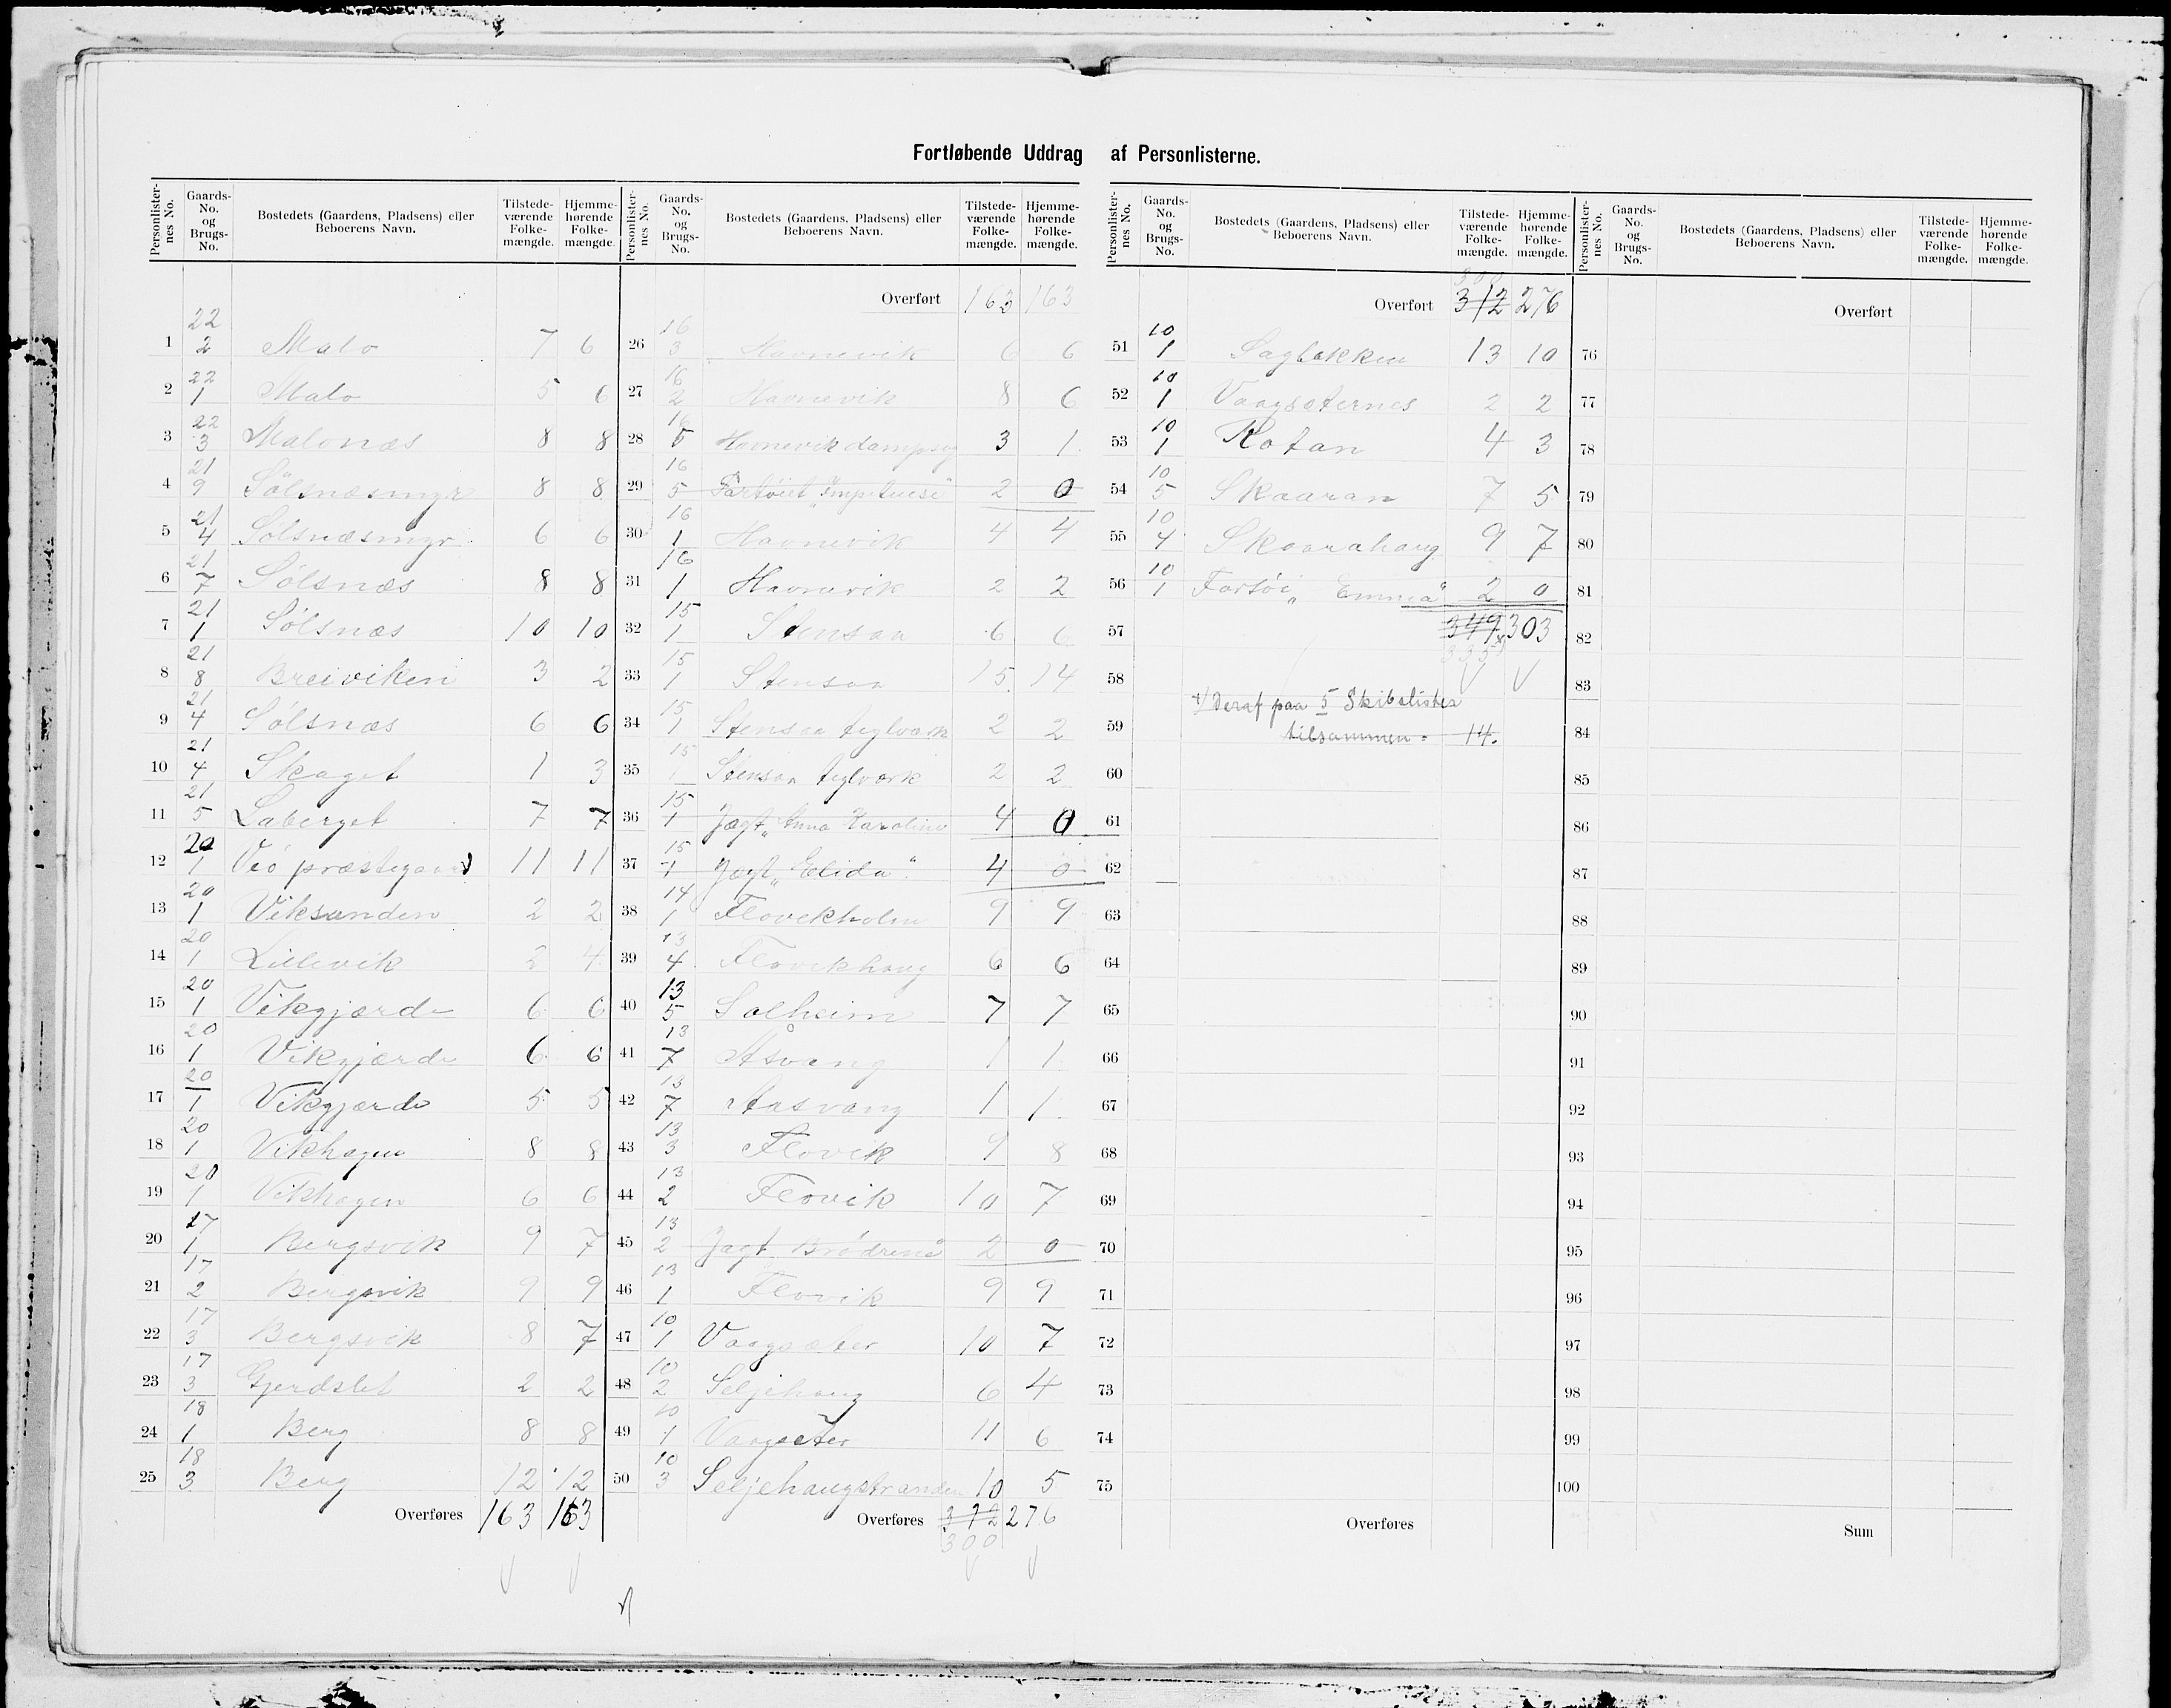 Fortløbende Uddrag af Personlisterne.
Personlisternes No. Gaards-No. og Brugs-No. Bostedets (Gaardens, Pladsens) eller Beboerens Navn. Tilstedeværende Folkemængde. Hjemmehørende Folkemængde.
1 22 2 Malo 7 6
2 22 1 Malo 5 6
3 22 3 Malonæs 8 8
4 21 9 Sölsnæsmyr 8 8
5 21 4 Sölsnæsmyr 6 6
6 21 7 Sölsnæs 8 8
7 21 1 Sölsnæs 10 10
8 21 8 Breiviken 3 2
9 21 4 Sölsnæs 6 6
10 21 4 Skaget 1 3
11 21 5 Laberget 7 7
12 20 1 Veö præstegaard 11 11
13 20 1 Viksanden 2 2
14 20 1 Lillevik 2 4
15 20 1 Vikgjærde 6 6
16 20 1 Vikgjærde 6 6
17 20 1 Vikgjærde 5 5
18 20 1 Vikhagen 8 8
19 20 1 Vikhagen 6 6
20 17 1 Bergsvik 9 7
21 17 2 Bergsvik 9 9
22 17 3 Bergsvik 8 7
23 17 3 Gjerdslet 2 2
24 18 1 Berg 8 8
25 18 3 Berg 12 12
Overføres 163 163
Personlisternes No. Gaards-No. og Brugs-No. Bostedets (Gaardens, Pladsens) eller Beboerens Navn. Tilstedeværende Folkemængde. Hjemmehørende Folkemængde.
Overført 163 163
26 16 3 Havnevik 6 6
27 16 2 Havnevik 8 6
28 16 5 Havnevik dampsag 3 1
29 16 5 Fartöiet 2 0
30 16 1 Havnevik 4 4
31 16 1 Havnevik 2 2
32 15 1 Stensaa 6 6
33 15 1 Stensaa 15 14
34 15 1 Stensaa teglværk 2 2
35 15 1 Stensaa teglværk 2 2
36 15 1 Jagt „Anna Karoline 4 0
37 15 1 Jagt „Elida" 4 0
38 14 1 Flovikholm 9 9
39 13 4 Flovikhaug 6 6
40 13 5 Solheim 7 7
41 13 7 Åsvang 1 1
42 13 7 Aasvang 1 1
43 13 3 Flovik 9 8
44 13 2 Flovik 10 7
45 13 2 Jagt Brödrene" 2 0
46 13 1 Flovik 9 9
47 10 1 Vaagsæter 10 7
48 10 2 Seljehaug 6 4
49 10 1 Vaagsæter 11 6
50 10 3 Seljehaugstranden 10 5
Overføres 312 276
300
Personlisternes No. Gaards-No. og Brugs-No. Bostedets (Gaardens, Pladsens) eller Beboerens Navn. Tilstedeværende Folkemængde. Hjemmehørende Folkemængde.
300
Overført 312 276
51 10 1 Sagbakken 13 10
52 10 1 Vaagsæternes 2 2
53 10 1 Rotan 4 3
54 10 5 Skaaran 7 5
55 10 4 Skaarahaug 9 7
56 10 1 Fartöi „Emma" 2 0
57 349 303
335
58
x) Deraf paa 5 Skibslister
59 tilsammen = 14.
60
61
62
63
64
65
66
67
68
69
70
71
72
73
74
75
Overføres
Personlisternes No. Gaards-No. og Brugs-No. Bostedets (Gaardens, Pladsens) eller Beboerens Navn. Tilstedeværende Folkemængde. Hjemmehørende Folkemængde.
Overført
76
77
78
79
80
81
82
83
84
85
86
87
88
89
90
91
92
93
94
95
96
97
98
99
100
Sum